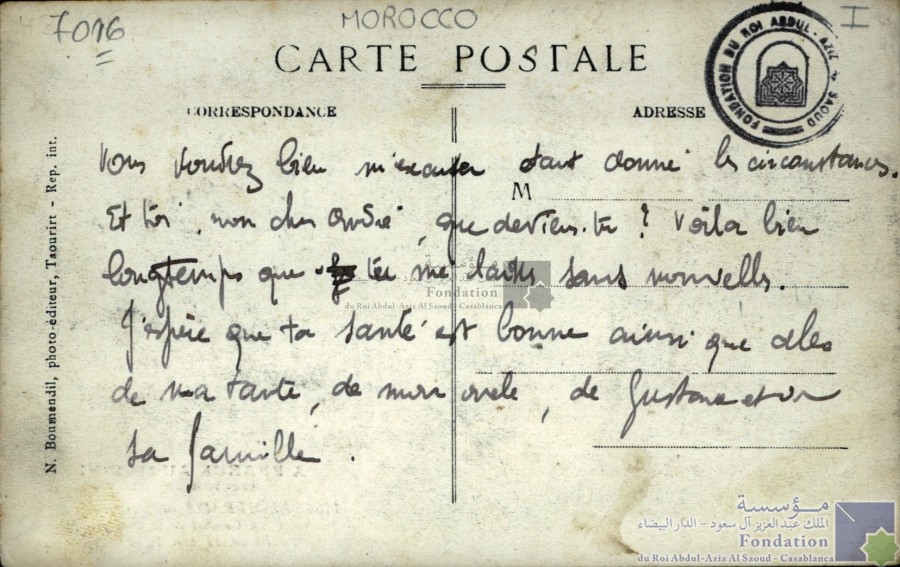 7016
MOROCCO
I
CARTE POSTALE
FONDATION DU ROI ABDUL-AZIZ AL SAOUD
CORRESPONDANCE
ADRESSE
N. Boumendil, photo-éditeur, Taourirt - Rep. int.
M
Vous voudrez bien m'excuser étant donné les circonstances.
Et toi, mon cher André, que deviens-tu ? Voilà bien
longtemps que tu me laisses sans nouvelles.
J'espère que ta santé est bonne ainsi que celles
de ma tante, de mon oncle, de Gustave et de
sa famille.
مؤسسة
Fondation
du Roi Abdul-Aziz Al Saoud - Casablanca
مؤسسة
الملك عبد العزيز آل سعود - الدار البيضاء
Fondation
du Roi Abdul-Aziz Al Saoud - Casablanca